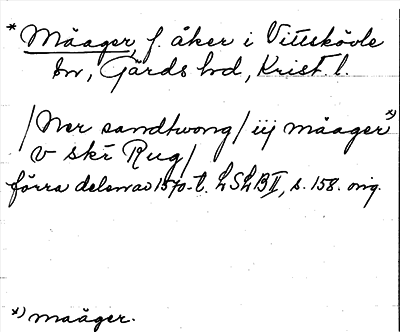 * Måager, f. åker i Vittskövle
sn, Gärds hd, Krist. l.
/Nør sandtwong/ iij måager *)
v skr Rug/
förra delen av 1570-t. LSLB II, s. 158. orig.
*) maåger.